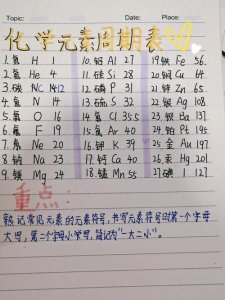 Topic: Date: Place:
化学元素周期表
1. 氢 H 1 10. 铝 Al 27 19. 铁 Fe 56
2. 氦 He 4 11. 硅 Si 28 20. 铜 Cu 64
3. 碳 C 12 12. 磷 P 31 21. 锌 Zn 65
4. 氮 N 14 13. 硫 S 32 22. 银 Ag 108
5. 氧 O 16 14. 氯 Cl 35.5 Ba 137
6. 氟 F 19 15. 氩 Ar 40 Pt 195
7. 氖 Ne 20 16. 钾 K 39 25. 金 Au 197
8. 钠 Na 23 17. 钙 Ca 40 26. 汞 Hg 201
9. 镁 Mg 24 18. 锰 Mn 55 27. 碘 I 127
重点:
熟记常见元素的元素符号,书写元素符号时第一个字母
大写,第二个字母小写,简记为"一大二小"。